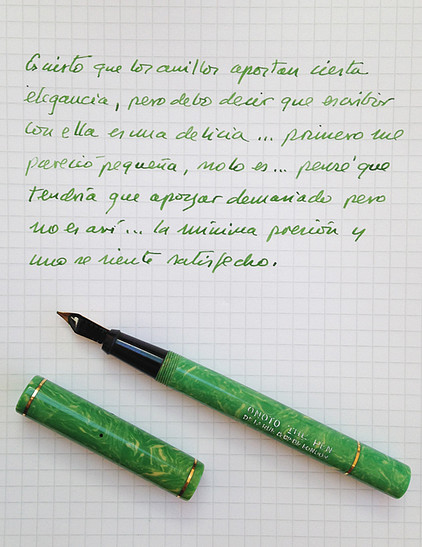 Es cierto que los anillos aportan cierta
elegancia, pero debo decir que escribir
con ella es una delicia... primero me
pareció pequeña, no lo es... pensé que
tendría que apoyar demasiado pero
no es así... la mínima presión y
uno se siente satisfecho.
ONOTO THE PEN
DE LA RUE & CO LTD LONDON